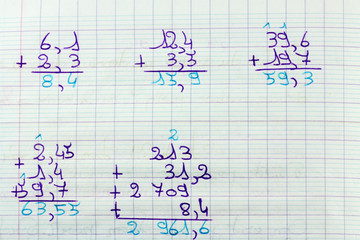 1 1
6,1
+ 2,3
8,4
12,4
+ 3,5
15,9
39,6
+ 19,7
59,3
1
+ 2,45
1
1,4
+ 59,7
63,55
2
213
+ 31,2
+ 2 709
+ 8,4
2 961,6